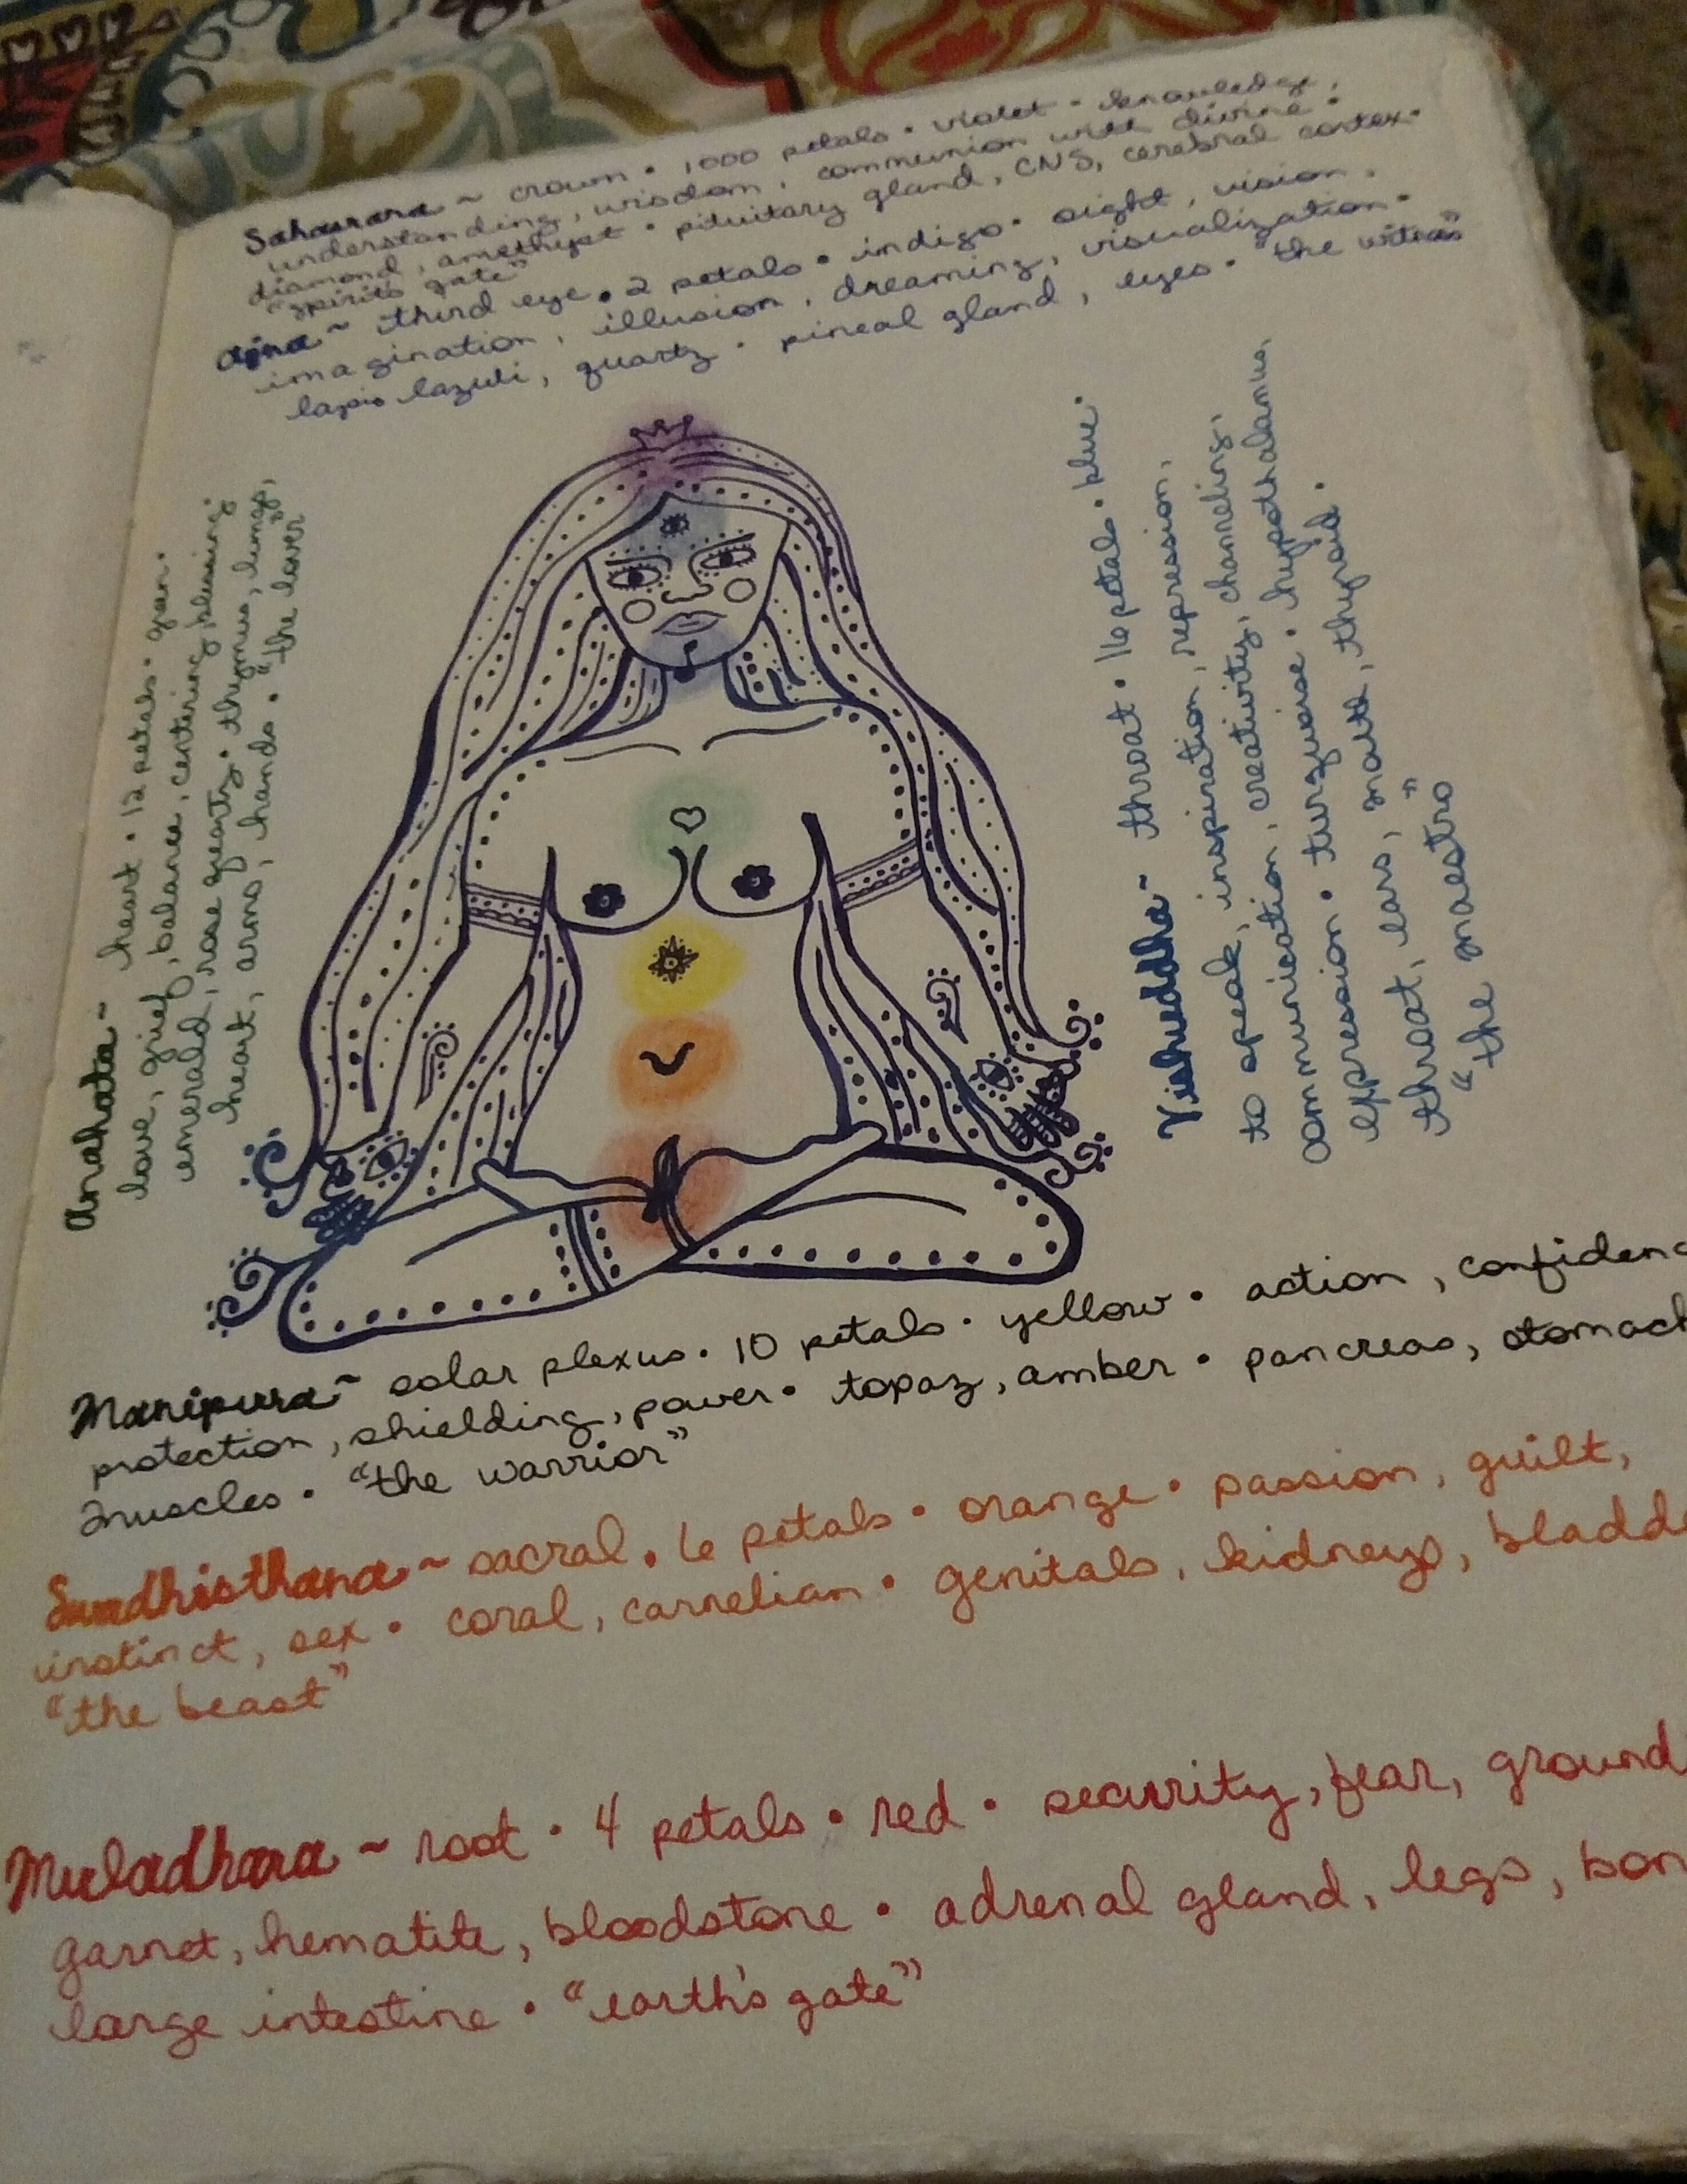 Sahasrara ~ crown • 1000 petals • violet • knowledge,
understanding, wisdom, communion with divine •
diamond, amethyst • pituitary gland, CNS, cerebral cortex •
"spirit's gate"
ajna ~ third eye • 2 petals • indigo • sight, vision,
imagination, illusion, dreaming, visualization •
lapis lazuli, quartz • pineal gland, eyes • "the witness"
anahata ~ heart • 12 petals • green •
love, grief, balance, centering, blessing •
emerald, rose quartz • thymus, lungs,
heart, arms, hands • "the lover
Vishuddha ~ throat • 16 petals • blue •
to speak, inspiration, repression,
communication, creativity, channeling,
expression • turquoise • hypothalamus,
throat, ears, mouth, thyroid •
"the maestro"
Manipura ~ solar plexus • 10 petals • yellow • action, confidenc
protection, shielding, power • topaz, amber • pancreas, stomach
muscles • "the warrior"
Svadhisthana ~ sacral • 6 petals • orange • passion, guilt,
instinct, sex • coral, carnelian • genitals, kidneys, bladde
"the beast"
Muladhara ~ root • 4 petals • red • securrity, fear, ground
garnet, hematite, bloodstone • adrenal gland, legs, bon
large intestine • "earth's gate"